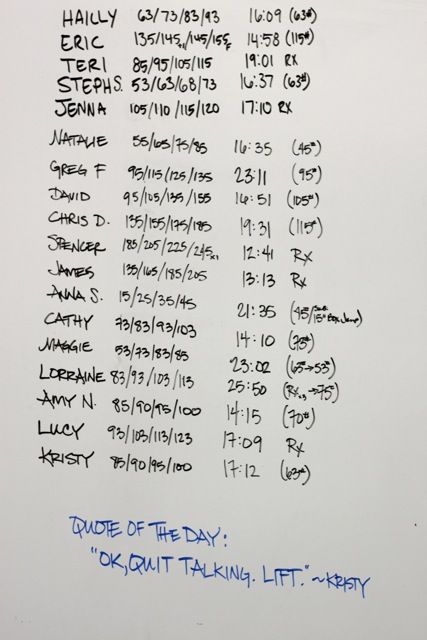 HAILLY 63/73/83/93 16:09 (63#)
ERIC 135/145x1/145/155F 14:58 (115#)
TERI 85/95/105/115 19:01 RX
STEPH S. 53/63/68/73 16:37 (63#)
JENNA 105/110/115/120 17:10 RX
NATALIE 55/65/75/85 16:35 (45#)
GREG F 95/115/125/135 23:11 (95#)
DAVID 95/105/135/155 16:51 (105#)
CHRIS D. 135/155/175/185 19:31 (115#)
SPENCER 185/205/225/245x1 12:41 Rx
JAMES 135/165/185/205 13:13 Rx
ANNA S. 15/25/35/45 21:35 (45/ 15" Box Jump)
CATHY 73/83/93/103 14:10 (73#)
MAGGIE 53/73/83/85 23:02 (65#→53#)
LORRAINE 83/93/103/113 25:50 (Rx →75#)
AMY N. 85/90/95/100 14:15 (70#)
LUCY 93/103/113/123 17:09 Rx
KRISTY 85/90/95/100 17:12 (63#)
QUOTE OF THE DAY:
"OK, QUIT TALKING. LIFT." ~KRISTY